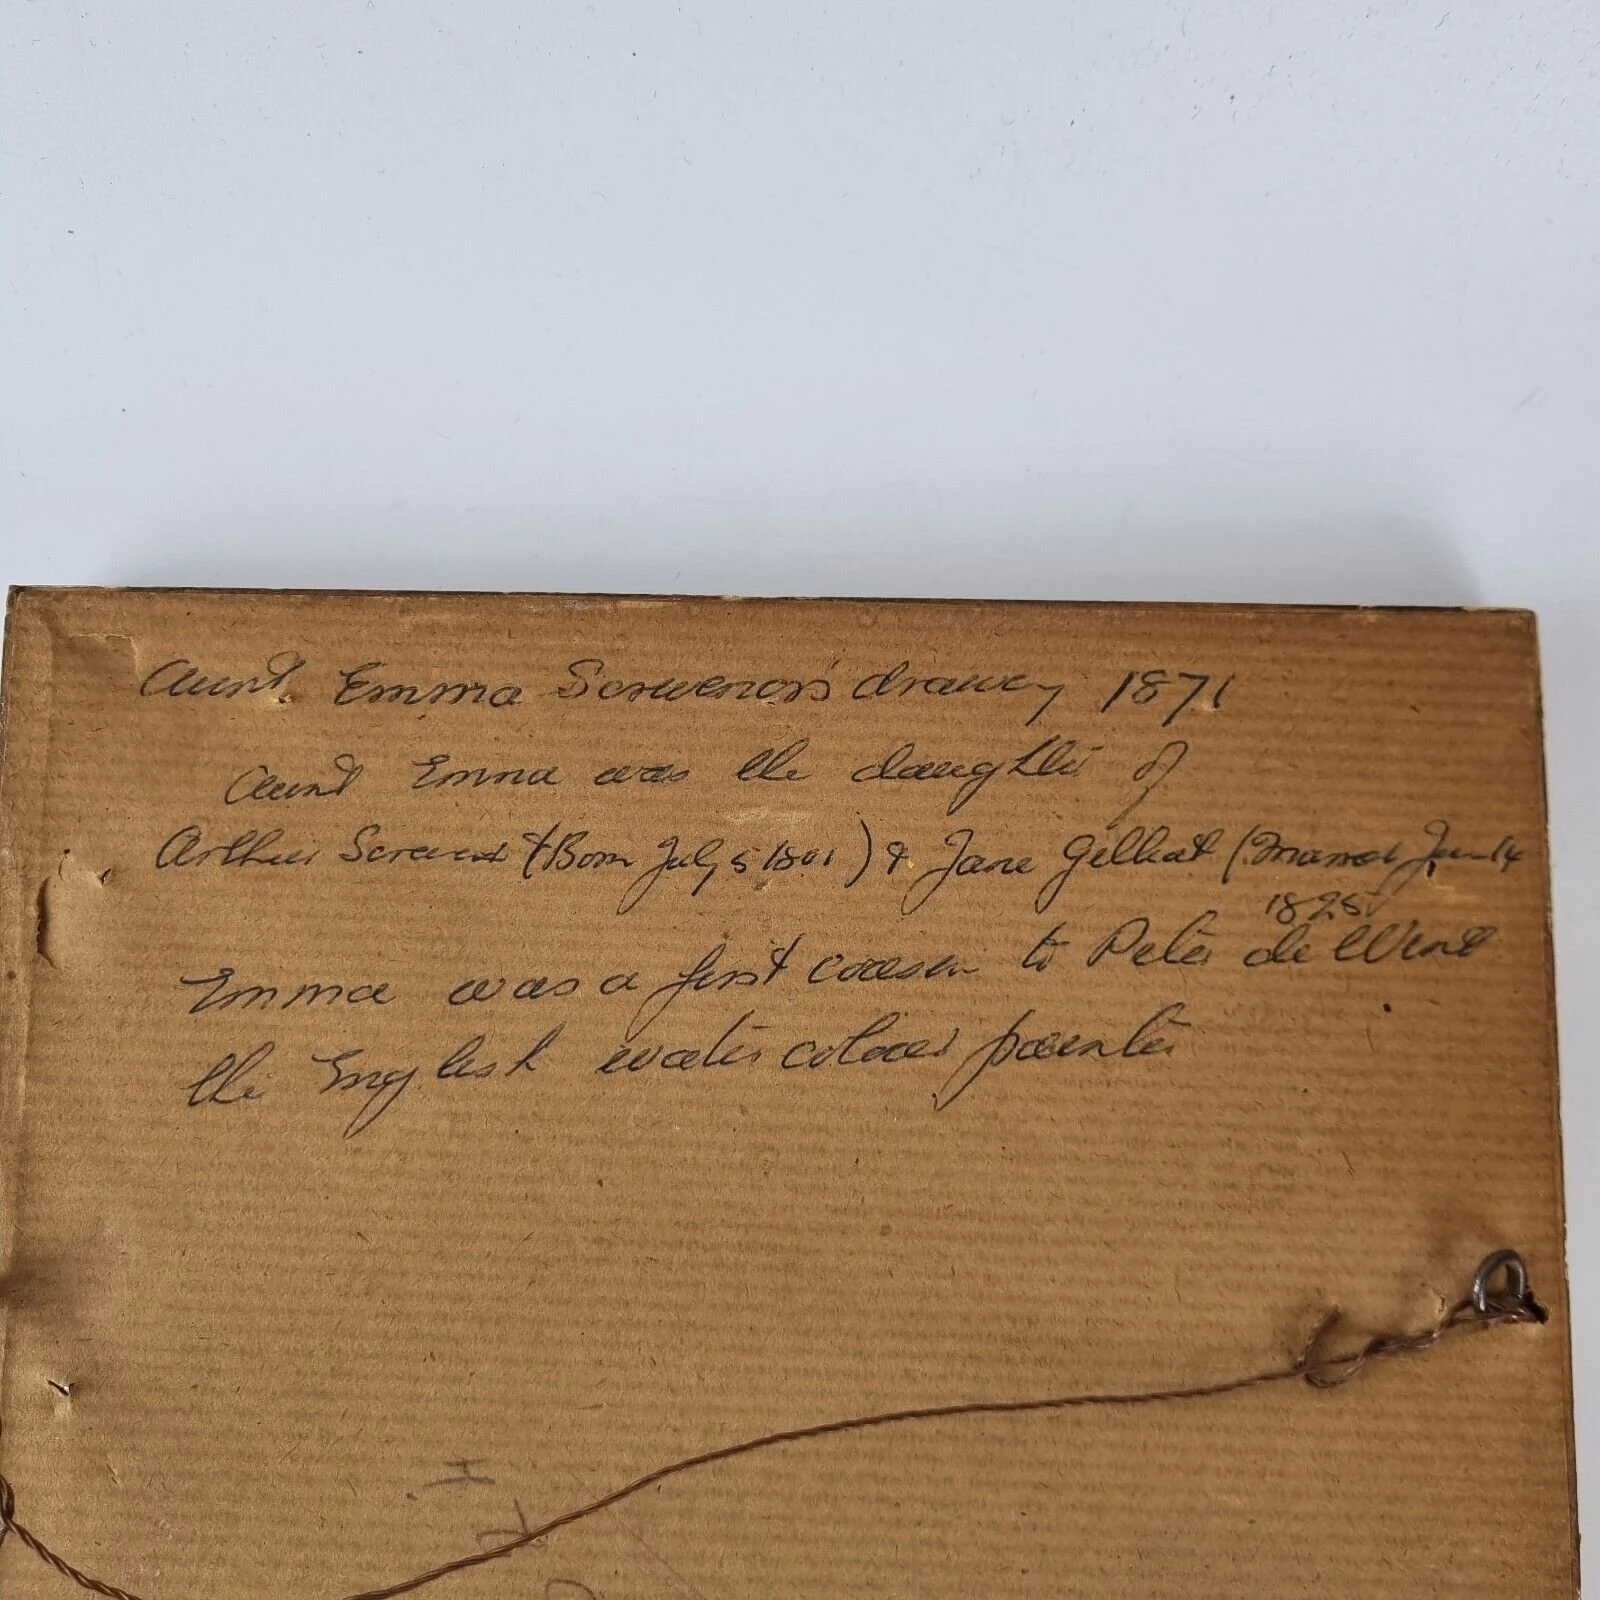 Aunt Emma Scrivenors drawing 1871
Aunt Emma was the daughter of
Arthur (Born July 5 1801) & Jane Gilliat (married Jan 14
1825
Emma was a first cousin to Peter de Wint
the English water colour painter